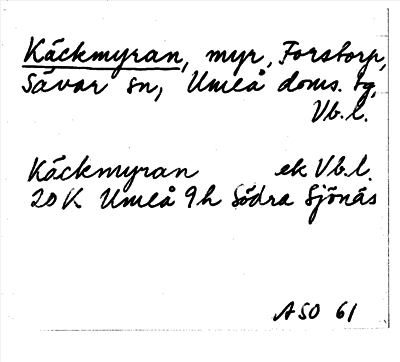 Käckmyran, myr, Forstorp,
Sävar sn, Umeå doms. tg,
Vb.l.
Käckmyran ek Vb.l.
20 K Umeå 9h Södra Sjönäs
ASO 61